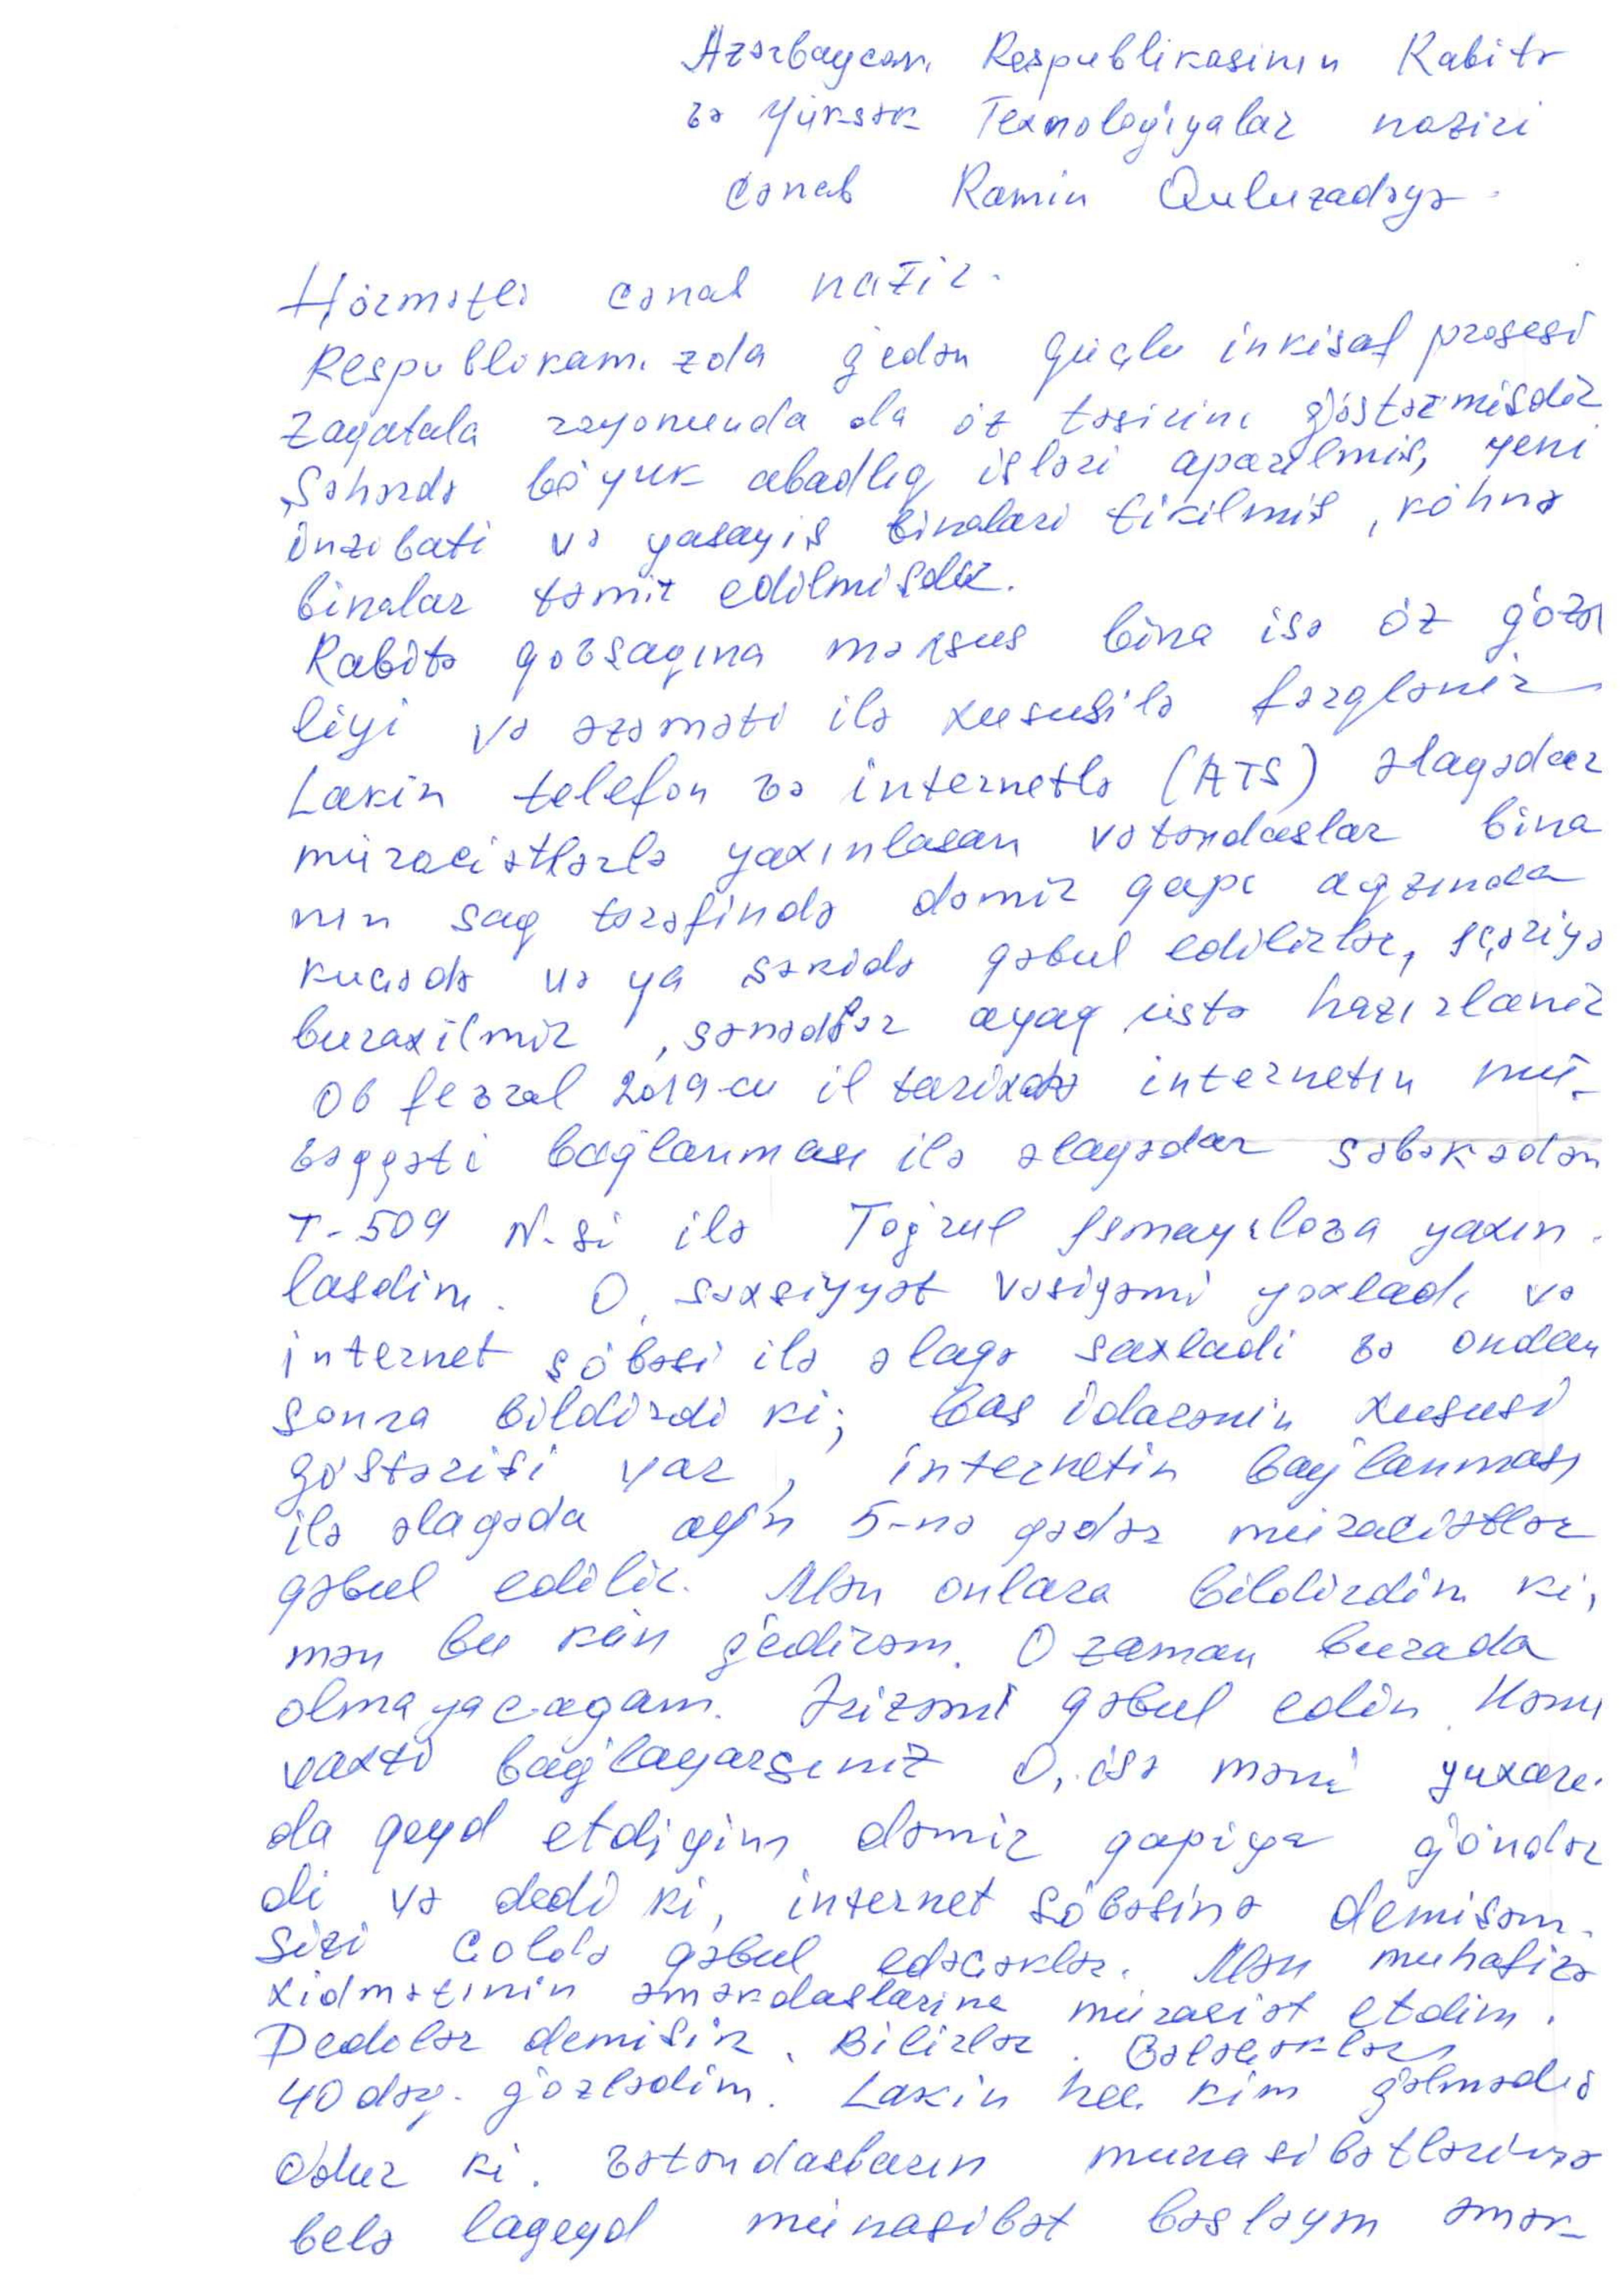 Azərbaycan Respublikasının Rabitə
və Yüksək Texnologiyalar naziri
Cənab Ramin Quluzadəyə.
Hörmətli cənab nazir.
Respublikamızda gedən güclu inkişaf prosesi
Zaqatala rayonunda da öz təsirini göstərmişdir
Şəhərdə böyuk abadlıq işləri aparılmış, yeni
inzibati və yasayış binaları tikilmiş, köhnə
binalar təmir edilmişdir.
Rabitə qovsağına məxsus bina isə öz gözəl
liyi və əzəməti ilə xususilə fərqlənir
Lakin telefon və internetlə (ATS) əlaqədar
müraciətlərlə yaxınlasan vətəndaslar bina
nın sag tərəfində dəmir qapı agzında
kucədə və ya səkidə qəbul edilirlər, içəriyə
buraxilmir, sənədlər ayaq üstə hazırlanir
06 fevral 2019-cu il tarixdə internetin mü-
vəqqəti bağlanması ilə əlaqədar şəbəkədən
T-509 N-si ilə Toğrul Ismayılova yaxın-
lasdim. O, səxsiyyət vəsiqəmi yoxladı və
internet şöbəsi ilə əlaqə saxladi və ondan
sonra bildirdi ki; Bas idarənin xususi
göstərişi var, internetin bağlanması
ilə əlaqədə ayın 5-nə qədər müraciətlər
qəbul edilir. Mən onlara bildirdim ki,
mən bu kün gedirəm. O zaman burada
olmayacagam. Ərizəmi qəbul edin. Həmin
vaxtı bağlayarsınız O, isə məni yuxarı-
da qeyd etdiyim dəmir qapiya göndər
di və dedi ki, internet söbəsinə demişəm.
Sizi Çoldə qəbul edəcəklər. Mən muhafizə
xidmətinin əməkdaslarına müraciət etdim.
Dedilər demişik. Bilirlər. Gələcəklər
40 dəq. gözlədim. Lakin heç kim gəlmədi
Odur ki. vətəndasların munasibətlərinə
belə laqeyd münasibət bəsləyən əmək-